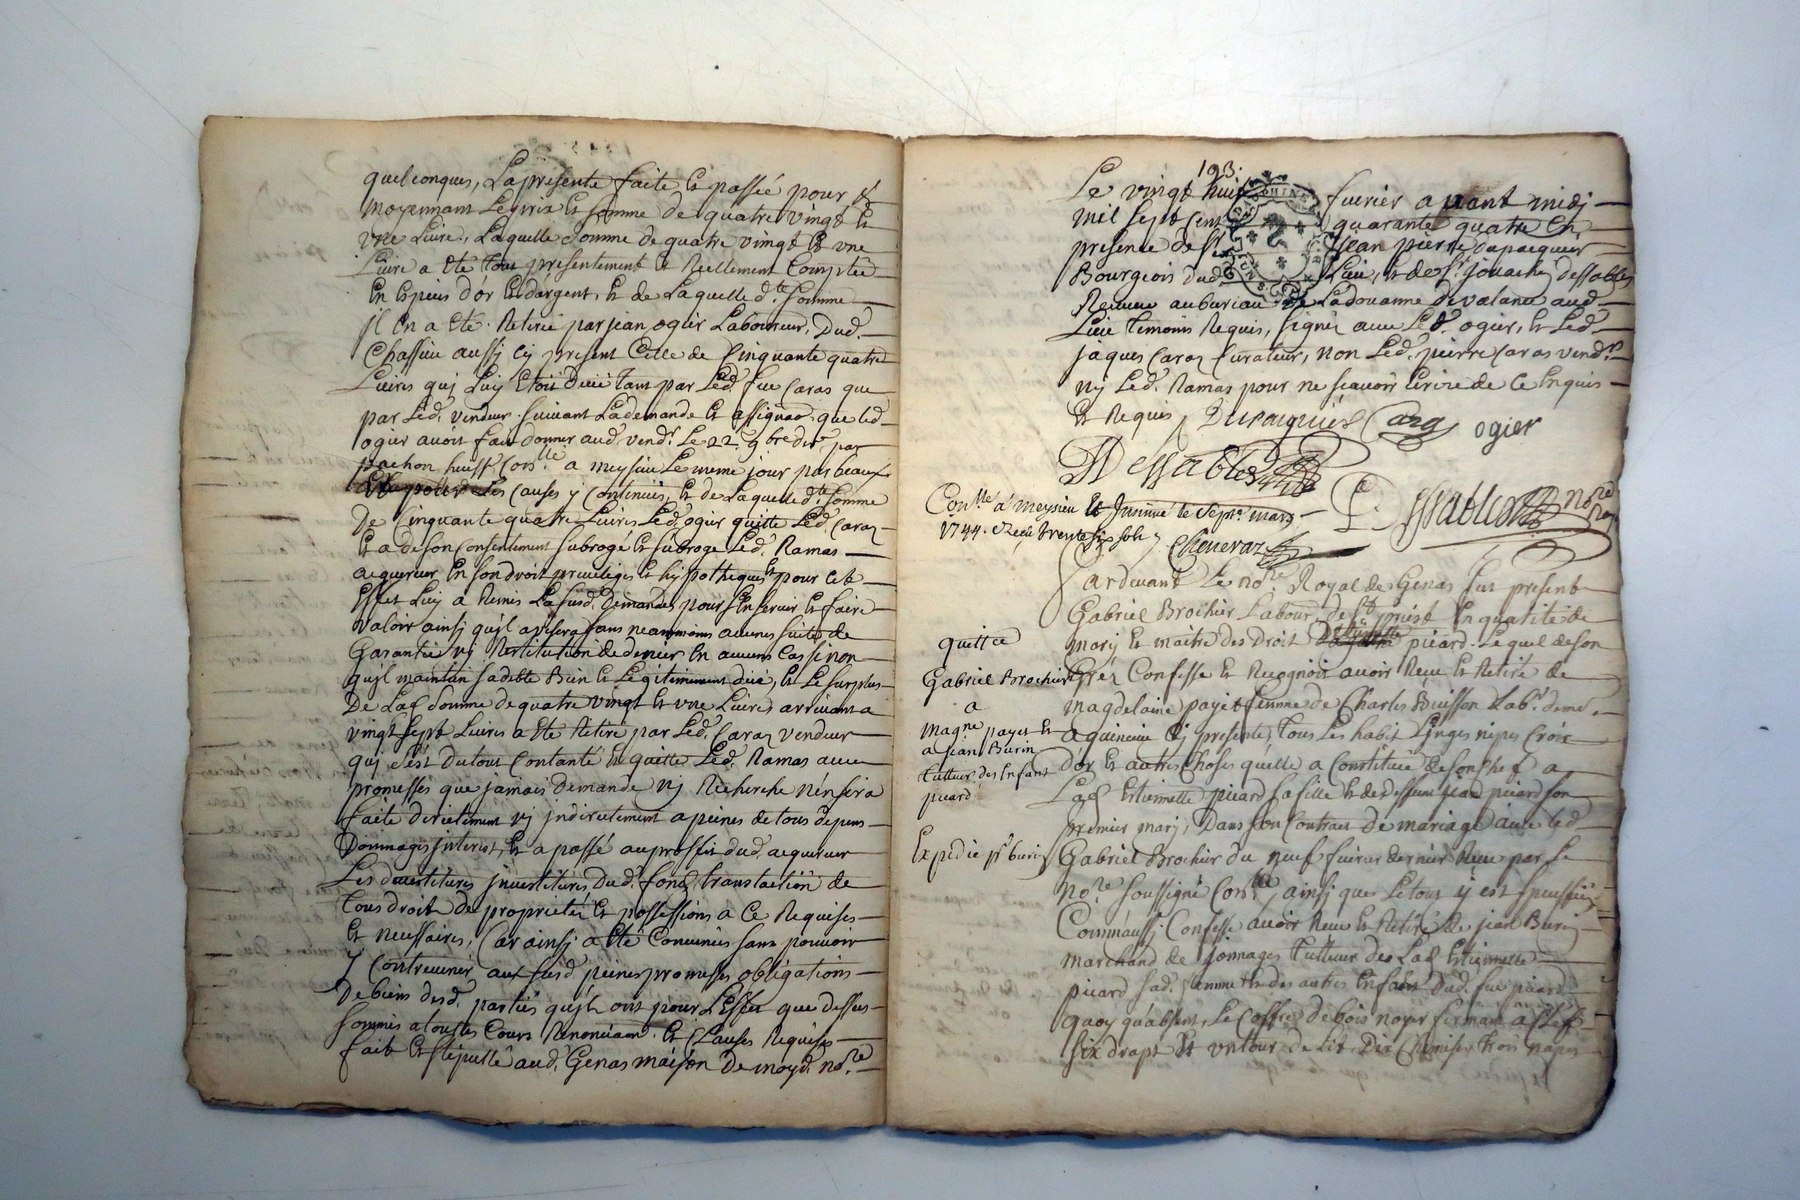 quelconques, La presente faite et passée pour &
moyennant Le prix et somme de quatre vingt et
une Livre, Laquelle somme de quatre vingt et une
Livre a eté tout presentement et Reellement Comptée
En Espèces d'or et d'argent, et de Laquelle d.te somme
jl En a eté Retiré par jean ogier Laboureur Dud.
Chassieu aussj Cy present Celle de Cinquante quatre
Livres quj Luy etoit duüe tant par Led. feu Caras que
par Led. vendeur suivant La demande et assignaõn que led
ogier avoit fait donner aud. vendr. Le 22. 9bre der. par
pachon huissr Conlle a meysieu Le meme jour par beaux
Les Causes y Contenües, et de Laquelle d.te somme
De Cinquante quatre Livres Led. ogier quitte Led. Caraz
et a de son Consentement subrogé et subroge Led. Ramas
acquereur En son droit privilegés et hypotheques et pour cet
Effet Luy a Remis La susd. Demande, pour s'En servir et faire
valoir ainsj qu'jl avisera sans neanmoins aucunes suitte de
Garantie nj Restitution de denier En aucuns Cas sinon
qu'jl maintien sa debte Bien et Legitimement düe, et Le surplus
De Lad. somme de quatre vingt et une Livres arrivant a
vingt sept Livres a eté Retiré par Led. Caraz vendeur
quj s'est du tout Contanté et quitte Led. Ramas avec
promesses que jamais demande nj Recherche n'en sera
faite directement nj jndirectement a peines de tous depens
Dommages jnterest, et a passé au proffit dud. acquereur
Les devestitures jnvestitures Dud. fond, translaction de
tous droit de proprieté et possessions a Ce Requises
et necessaires, Car ainsj a eté Convenües sans pouvoir
y Contrevenir aux susd. peines promesses obligations
De biens desd. parties qu'jls ont pour L'Effet que dessus
soumis a toutes Cours Renonciaõn et Clauses Requises
fait et stipullé aud. Genas maison De moyd. nore
193.
Le vingt huit fevrier avant midj
mil sept Cent quarante quatre En
presence de sr jean pierre Dupacquier
Bourgeois dud. Lieu, et de sr jouachin dessables
Receveur au bureau de La doüanne de valance aud.
Lieu temoins Requis, signés avec Led. ogier, et Led.
jaques Caraz Curateur, non Led. pierre Caras vendr
nj Led. Ramas pour ne sçavoir Ecrire de Ce Enquis
et Requis Dupacquier Caraz ogier
Dessables
P. Dessables nore Roy
Conlle a Meysieu et Insinué le Sept.e mars
1744. Receu trente six sols
Cheneraz
Pardevant Le nore Royal de Genas fut present
Gabriel Brochier Labour. de st priest En qualité de
marj et maitre des Droit Estiennette picard. Lequel de son
Gré, Confesse et Recognoit avoir Receu et Retiré de
magdelaine payet femme de Charles Buisson Labr. demt.
a quincieu Cj presente, tous Les habit Linges nipes Croix
d'or et autres Choses qu'elle a Constituë de son Chef a
Lad. Estiennette picard sa fille et de deffunt jean picard son
premier marj, Dans son Contract de mariage avec led.
Gabriel Brochier du neuf fevrier dernier Receu par Le
nore soussigné Conlle, ainsj que Le tout y est specifié
Comm'aussj Confesse avoir Receu et Retiré de jean Burin
marchand de jonnages tutteur de Lad. Estiennette
picard sad. femme et des autres Enfans Dud. feu picard
quoy qu'absent, Le Coffre de bois noyer fermant a Clef
six draps et un tour de Lit, Dix Chemises trois napes
quittce
Gabriel Brochier
a
Magne payet et
a jean Burin
tutteur des Enfant
picard
Expedié pr burin